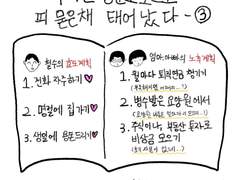 피 묻은채 태어났다 - ③
철수의 효도계획
1. 전화 자주하기
2. 명절에 집가기
3. 생일에 용돈드리기
엄마·아빠의 노후계획
1. 월마다 퇴직연금 챙기기
2. 병수발은 요양원에서
3. 주식이나, 부동산 투자로
비상금 모으기